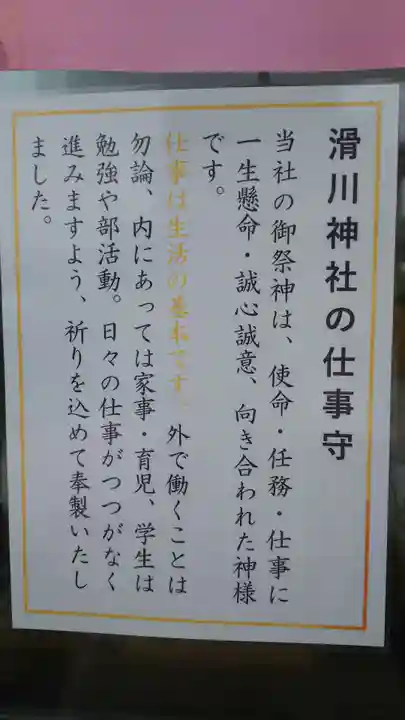 滑川神社の仕事守
当社の御祭神は、使命・任務・仕事に
一生懸命・誠心誠意、向き合われた神様
です。
仕事は生活の基本です。外で働くことは
勿論、内にあっては家事・育児、学生は
勉強や部活動。日々の仕事がつつがなく
進みますよう、祈りを込めて奉製いたし
ました。